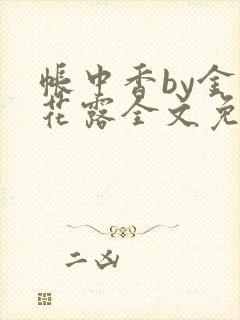 帐中香by金
花露全文免
二凶